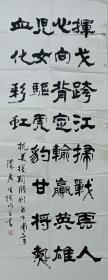 揮戈跨江掃戰雲人
心向背輸贏典英雄
兒女驅虎豹甘將熱
血化彩虹
抗美援朝勝利七十周年